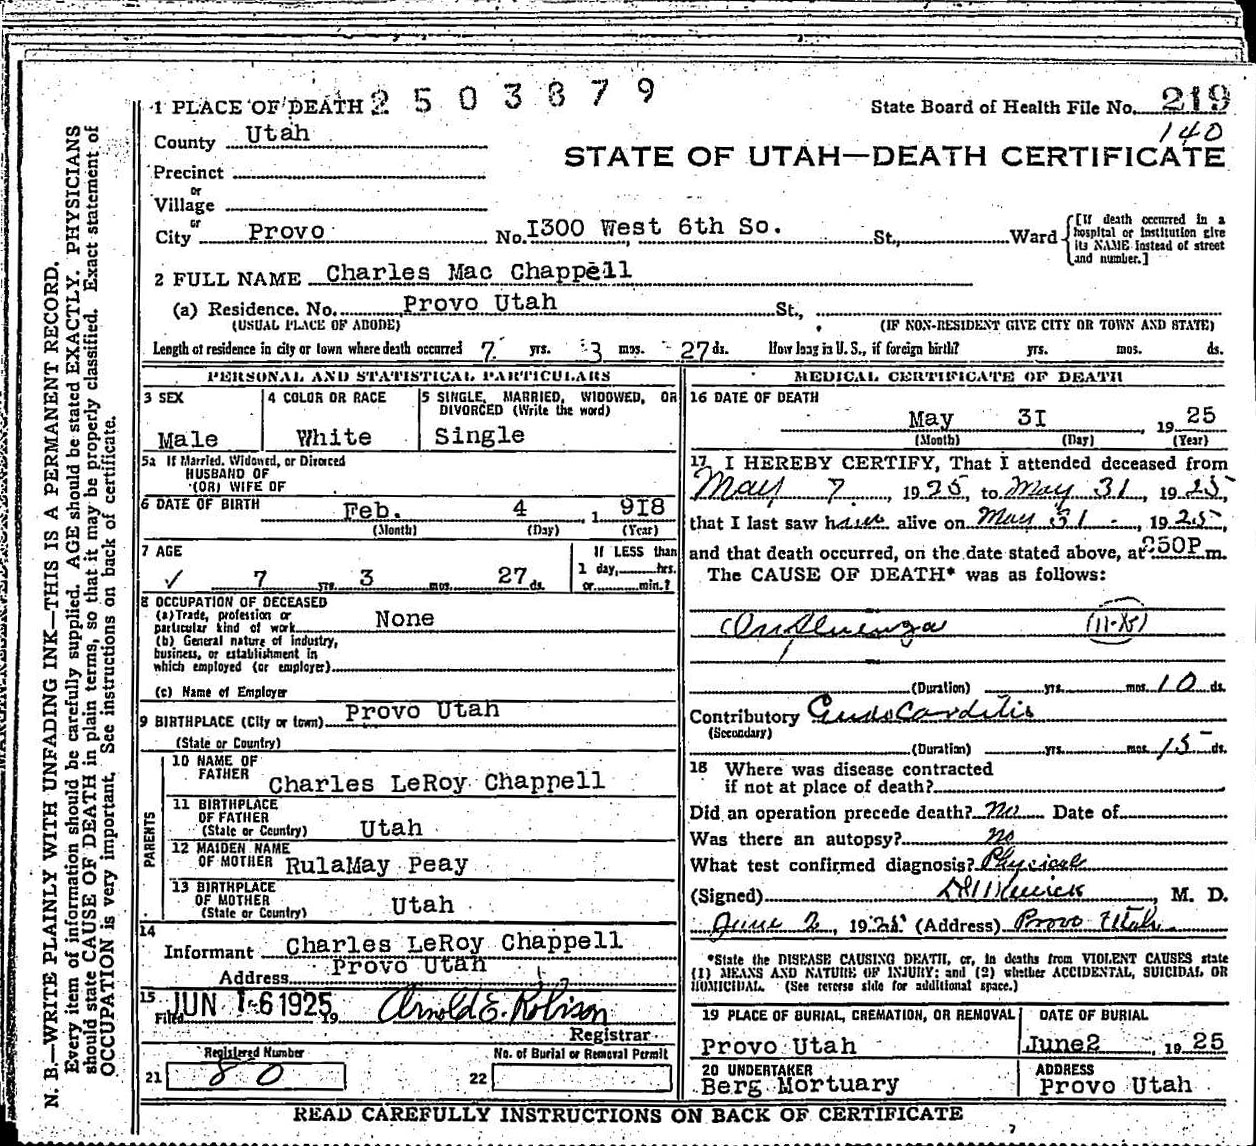 1 PLACE OF DEATH 2 5 0 3 8 7 9
State Board of Health File No. 219
140
County Utah
STATE OF UTAH—DEATH CERTIFICATE
Precinct
or
Village
or
City Provo No. 1300 West 6th So. St., Ward
[If death occurred in a hospital or institution give its NAME instead of street and number.]
2 FULL NAME Charles Mac Chappell
(a) Residence. No. Provo Utah St.,
(USUAL PLACE OF ABODE) (IF NON-RESIDENT GIVE CITY OR TOWN AND STATE)
Length of residence in city or town where death occurred 7 yrs. 3 mos. 27 ds. How long in U. S., if foreign birth? yrs. mos. ds.
PERSONAL AND STATISTICAL PARTICULARS
3 SEX
Male
4 COLOR OR RACE
White
5 SINGLE, MARRIED, WIDOWED, OR DIVORCED (Write the word)
Single
5a If Married, Widowed, or Divorced
HUSBAND OF
(OR) WIFE OF
6 DATE OF BIRTH Feb. 4 1 918
(Month) (Day) (Year)
7 AGE
7 yrs. 3 mos. 27 ds.
If LESS than
1 day, hrs.
or min.?
8 OCCUPATION OF DECEASED
(a) Trade, profession or
particular kind of work None
(b) General nature of industry,
business, or establishment in
which employed (or employer)
(c) Name of Employer
9 BIRTHPLACE (City or town) Provo Utah
(State or Country)
PARENTS
10 NAME OF
FATHER Charles LeRoy Chappell
11 BIRTHPLACE
OF FATHER
(State or Country) Utah
12 MAIDEN NAME
OF MOTHER RulaMay Peay
13 BIRTHPLACE
OF MOTHER
(State or Country) Utah
14
Informant Charles LeRoy Chappell
Address Provo Utah
15
Filed JUN 16 1925 19 Arnold E. Robison
Registrar
Registered Number
21 80
No. of Burial or Removal Permit
22
MEDICAL CERTIFICATE OF DEATH
16 DATE OF DEATH
May 31 1925
(Month) (Day) (Year)
17 I HEREBY CERTIFY, That I attended deceased from
May 7, 1925, to May 31, 1925,
that I last saw h alive on May 31, 1925,
and that death occurred, on the date stated above, at 50P m.
The CAUSE OF DEATH* was as follows:
Influenza
(Duration) yrs. mos. 10 ds.
Contributory Endocarditis
(Secondary)
(Duration) yrs. mos. 15 ds.
18 Where was disease contracted
if not at place of death?
Did an operation precede death? No Date of
Was there an autopsy? no
What test confirmed diagnosis? Physical
(Signed) M. D.
June 2, 1925 (Address) Provo Utah
*State the DISEASE CAUSING DEATH, or, in deaths from VIOLENT CAUSES state
(1) MEANS AND NATURE OF INJURY; and (2) whether ACCIDENTAL, SUICIDAL OR
HOMICIDAL. (See reverse side for additional space.)
19 PLACE OF BURIAL, CREMATION, OR REMOVAL
Provo Utah
DATE OF BURIAL
June2, 1925
20 UNDERTAKER
Berg Mortuary
ADDRESS
Provo Utah
READ CAREFULLY INSTRUCTIONS ON BACK OF CERTIFICATE
N. B.—WRITE PLAINLY WITH UNFADING INK—THIS IS A PERMANENT RECORD.
Every item of information should be carefully supplied. AGE should be stated EXACTLY. PHYSICIANS
should state CAUSE OF DEATH in plain terms, so that it may be properly classified. Exact statement of
OCCUPATION is very important. See instructions on back of certificate.